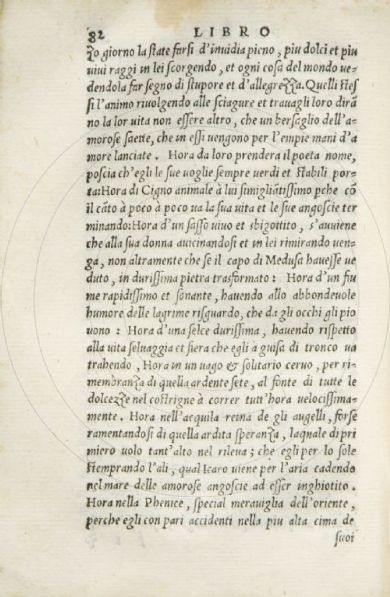 82 LIBRO
zo giorno la state farsi d'inuidia pieno, piu dolci et piu
uiui raggi in lei scorgendo, et ogni cosa del mondo ue-
dendola far segno di stupore et d'allegrezza. Quelli stes
si l'animo riuolgendo alle sciagure et trauagli loro dirã
no la lor uita non essere altro, che un bersaglio dell'a-
morose saette, che in essi uengono per l'empie mani d'a
more lanciate. Hora da loro prendera il poeta nome,
poscia ch'egli le sue uoglie sempre uerdi et stabili por-
ta: Hora di Cigno animale à lui simigliãtissimo pche cõ
il cãto à poco à poco ua la sua uita et le sue angoscie ter
minando: Hora d'un sasso uiuo et sbigottito, s'auuiene
che alla sua donna auicinandosi et in lei rimirando uen-
ga, non altramente che se il capo di Medusa hauesse ue
duto, in durissima pietra trasformato: Hora d'un fiu
me rapidissimo et sonante, hauendo allo abbondeuole
humore delle lagrime risguardo, che da gli occhi gli pio
uono: Hora d'una selce durissima, hauendo rispetto
alla uita seluaggia et fiera che egli à guisa di tronco ua
trahendo, Hora in un uago & solitario ceruo, per ri-
membranza di quella ardente sete, al fonte di tutte le
dolcezze nel costrigne à correr tutt'hora uelocissima-
mente. Hora nell'acquila reina de gli augelli, forse
ramentandosi di quella ardita speranza, laqnale di pri
miero uolo tant'alto nel rileua; che egli per lo sole
stemprando l'ali, qual Icaro uiene per l'aria cadendo
nel mare delle amorose angoscie ad esser inghiotito.
Hora nella Phenice, special merauiglia dell'oriente,
perche egli con pari accidenti nella piu alta cima de
suoi